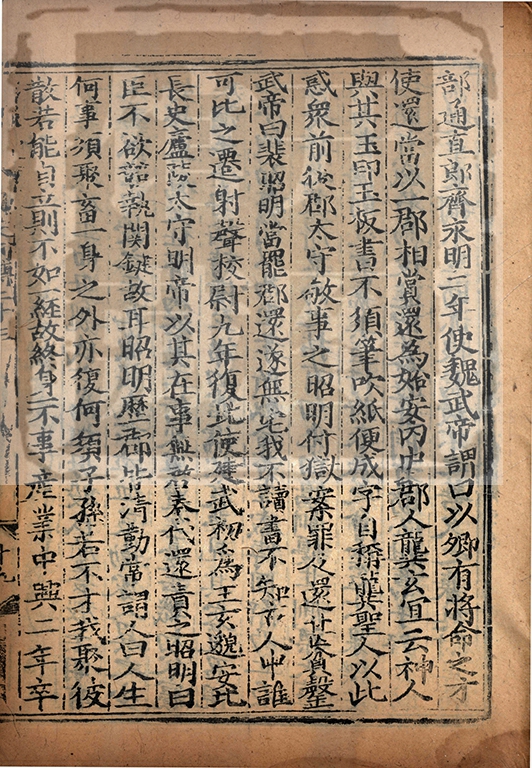 部通直郎齊永明二年使魏武帝謂曰以卿有將命之才
使還當以一郡相賞還為始安內史郡人龔玄宜云神人
與其玉印玉板書不須筆吹紙便成字自稱龔聖人以此
惑衆前後郡太守敬事之昭明付獄案罪及還甚貧罄
武帝曰裴昭明當罷郡還遂無宅我不讀書不知古人中誰
可比之遷射聲校尉九年復北使建武初為王玄邈安北
長史廣陵太守明帝以其在事無啓奏代還責之昭明曰
臣不欲競執関鍵故耳昭明歷郡皆清勤常謂人曰人生
何事須聚畜一身之外亦復何須子孫若不才我聚彼
散若能自立則不如一経故終身不事產業中興二年卒